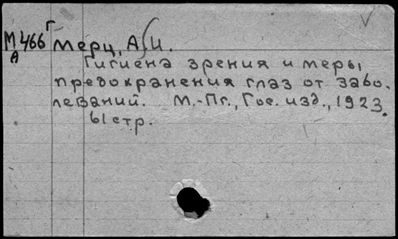 М466 Г
А
Мерц, А. И.
Гигиена зрения и меры
предохранения глаз от забо-
леваний. М.-Пг., Гос. изд., 1923.
61 стр.